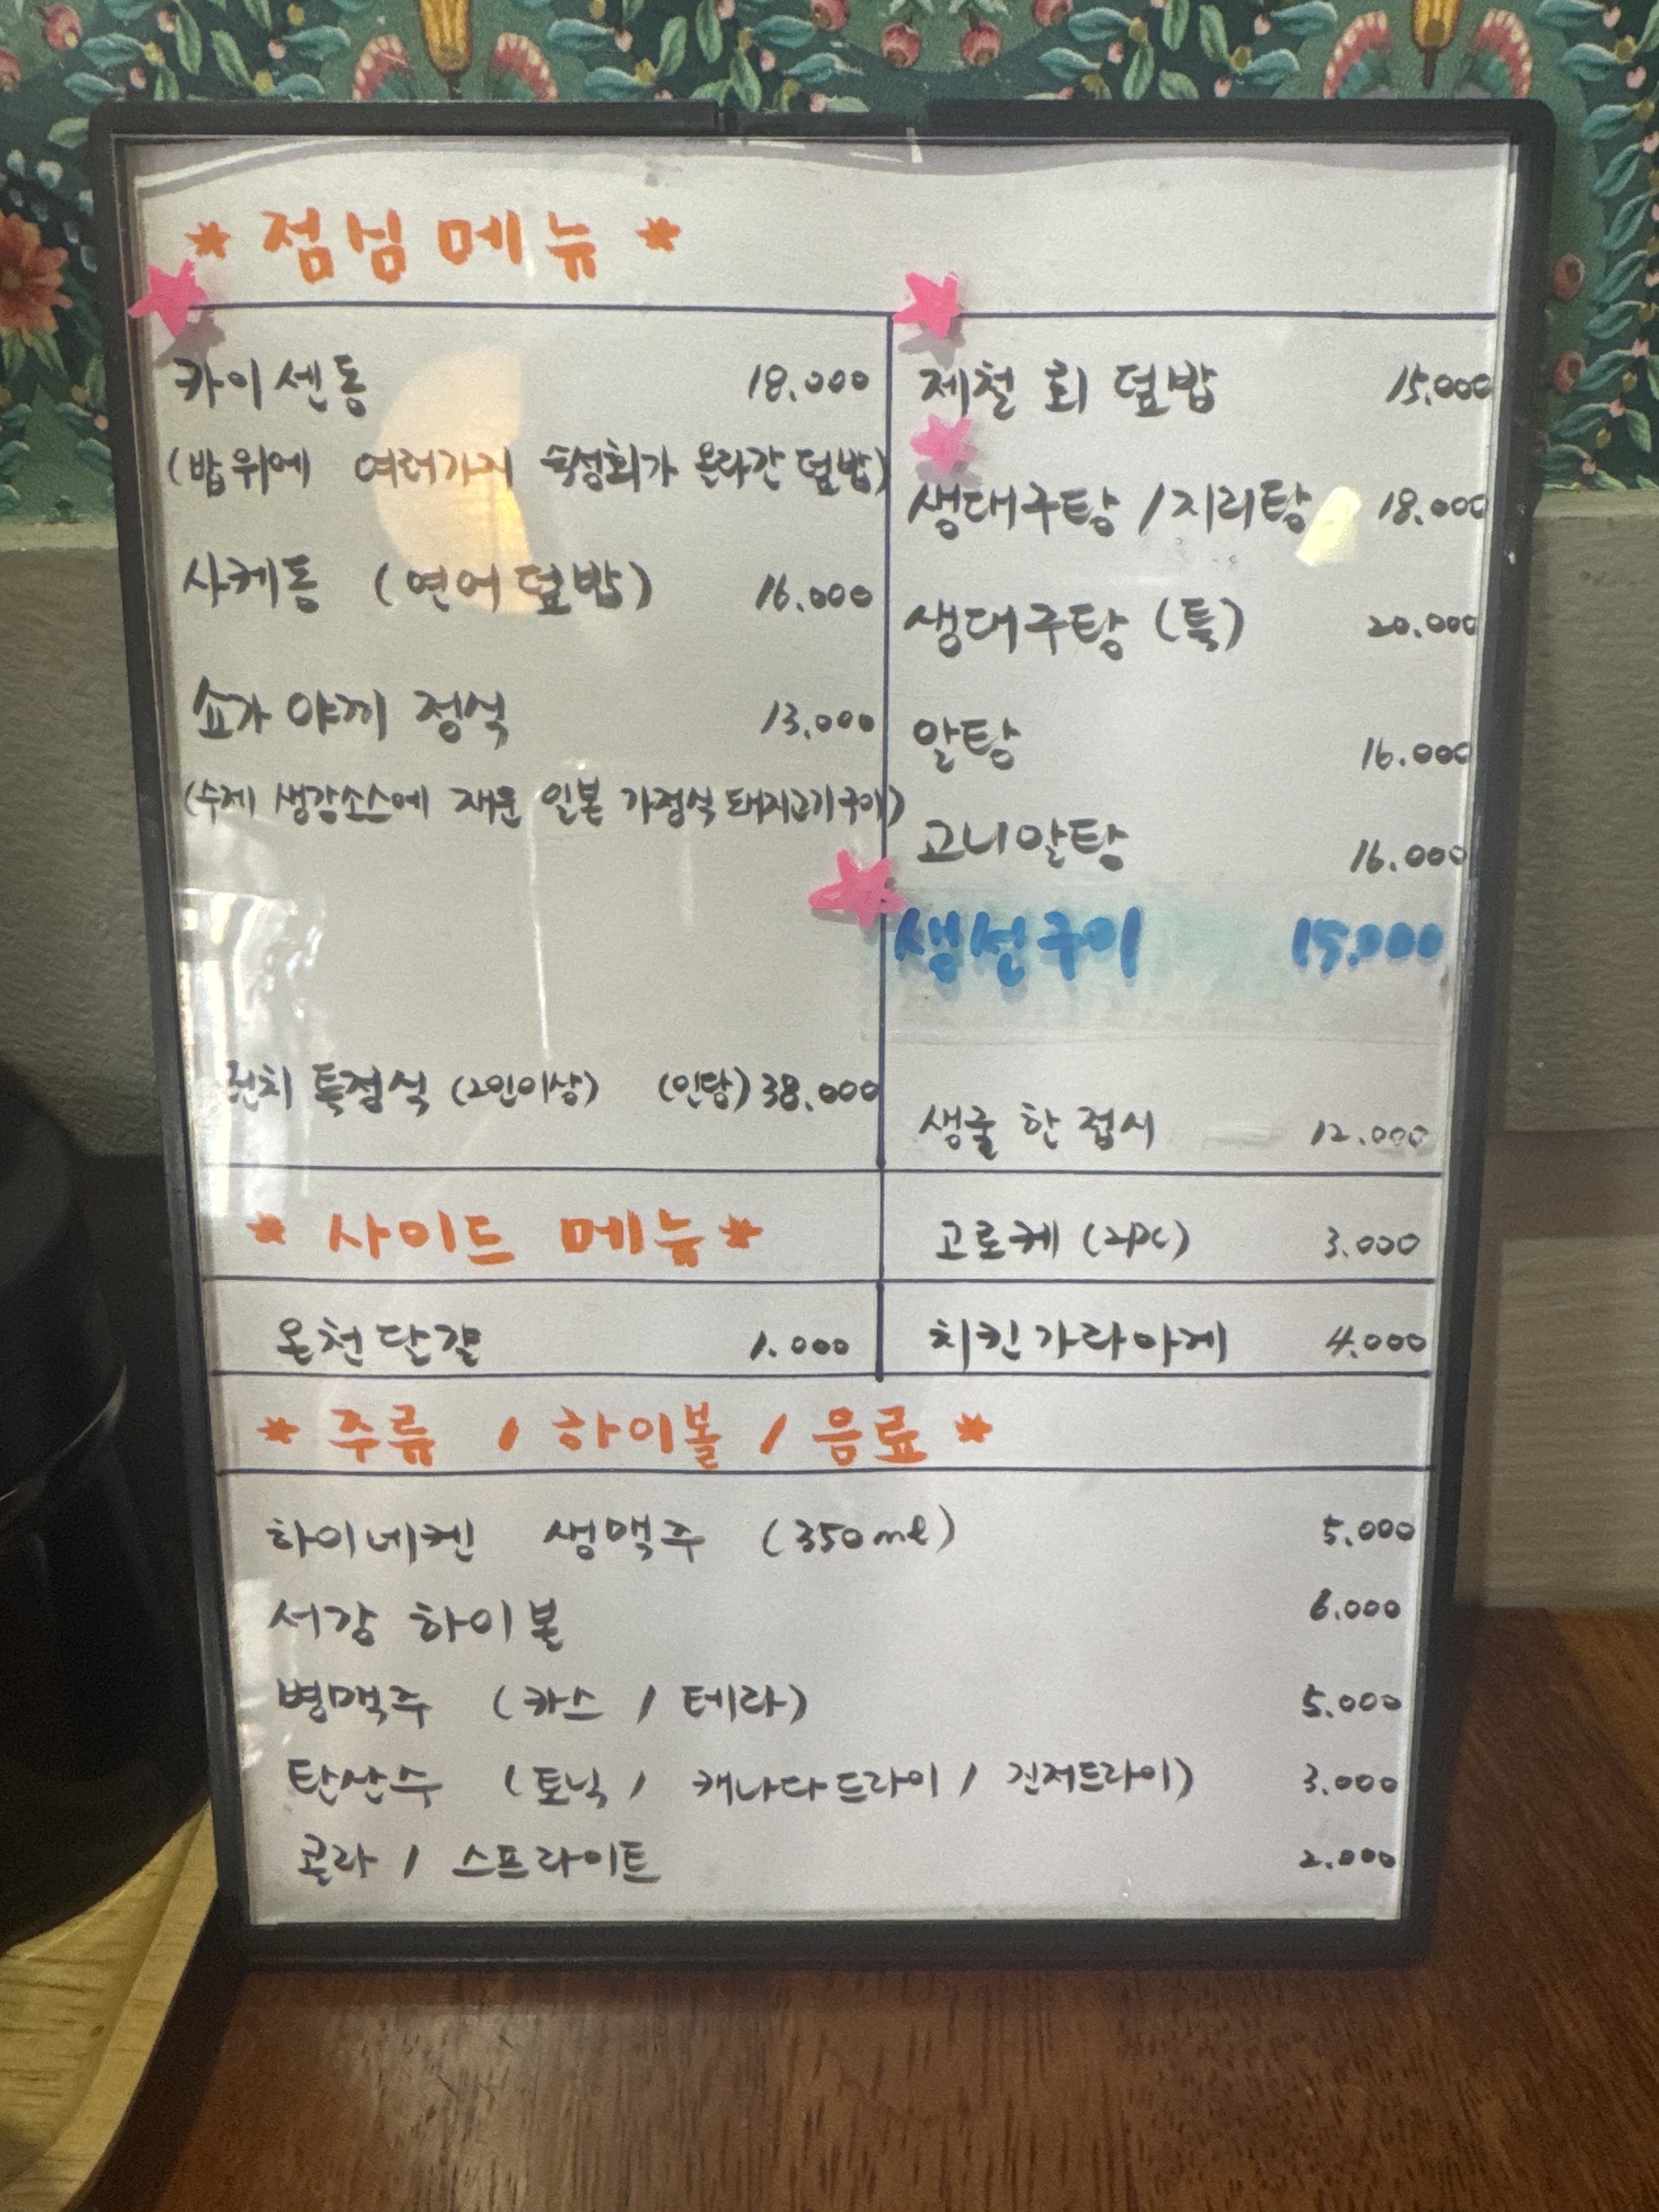 * 점심메뉴 *
카이센동 18.000
(밥위에 여러가지 숙성회가 올라간 덮밥)
사케동 (연어덮밥) 16.000
쇼가야끼 정식 13.000
(수제 생강소스에 재운 일본 가정식 돼지고기구이)
런치 특정식 (2인이상) (인당) 38.000
제철 회 덮밥 15.000
생대구탕 / 지리탕 18.000
생대구탕 (특) 20.000
알탕 16.000
고니알탕 16.000
생선구이 15.000
생굴 한 접시 12.000
* 사이드 메뉴 *
고로케 (2pc) 3.000
온천단걀 1.000
치킨가라아게 4.000
* 주류 / 하이볼 / 음료 *
하이네켄 생맥주 (350ml) 5.000
서강 하이볼 6.000
병맥주 (카스 / 테라) 5.000
탄산수 (토닉 / 캐나다드라이 / 진저드라이) 3.000
콜라 / 스프라이트 2.000